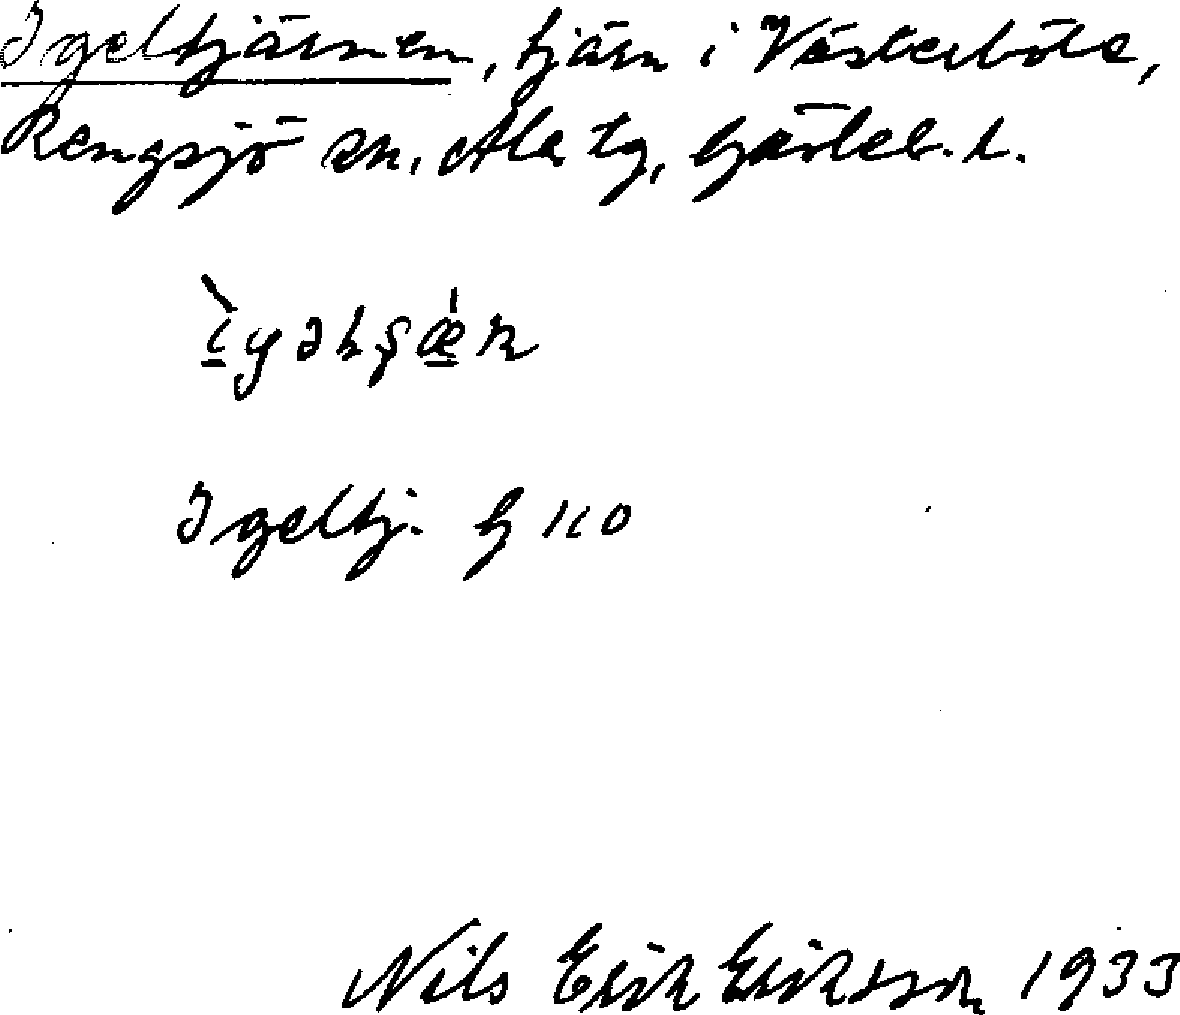 Igeltjärnen, tjärn i Västerböle,
Rengsjö sn, Ala tg, Gävleb. l.
Igeltj. G 110
Nils Erik Eriksson 1933